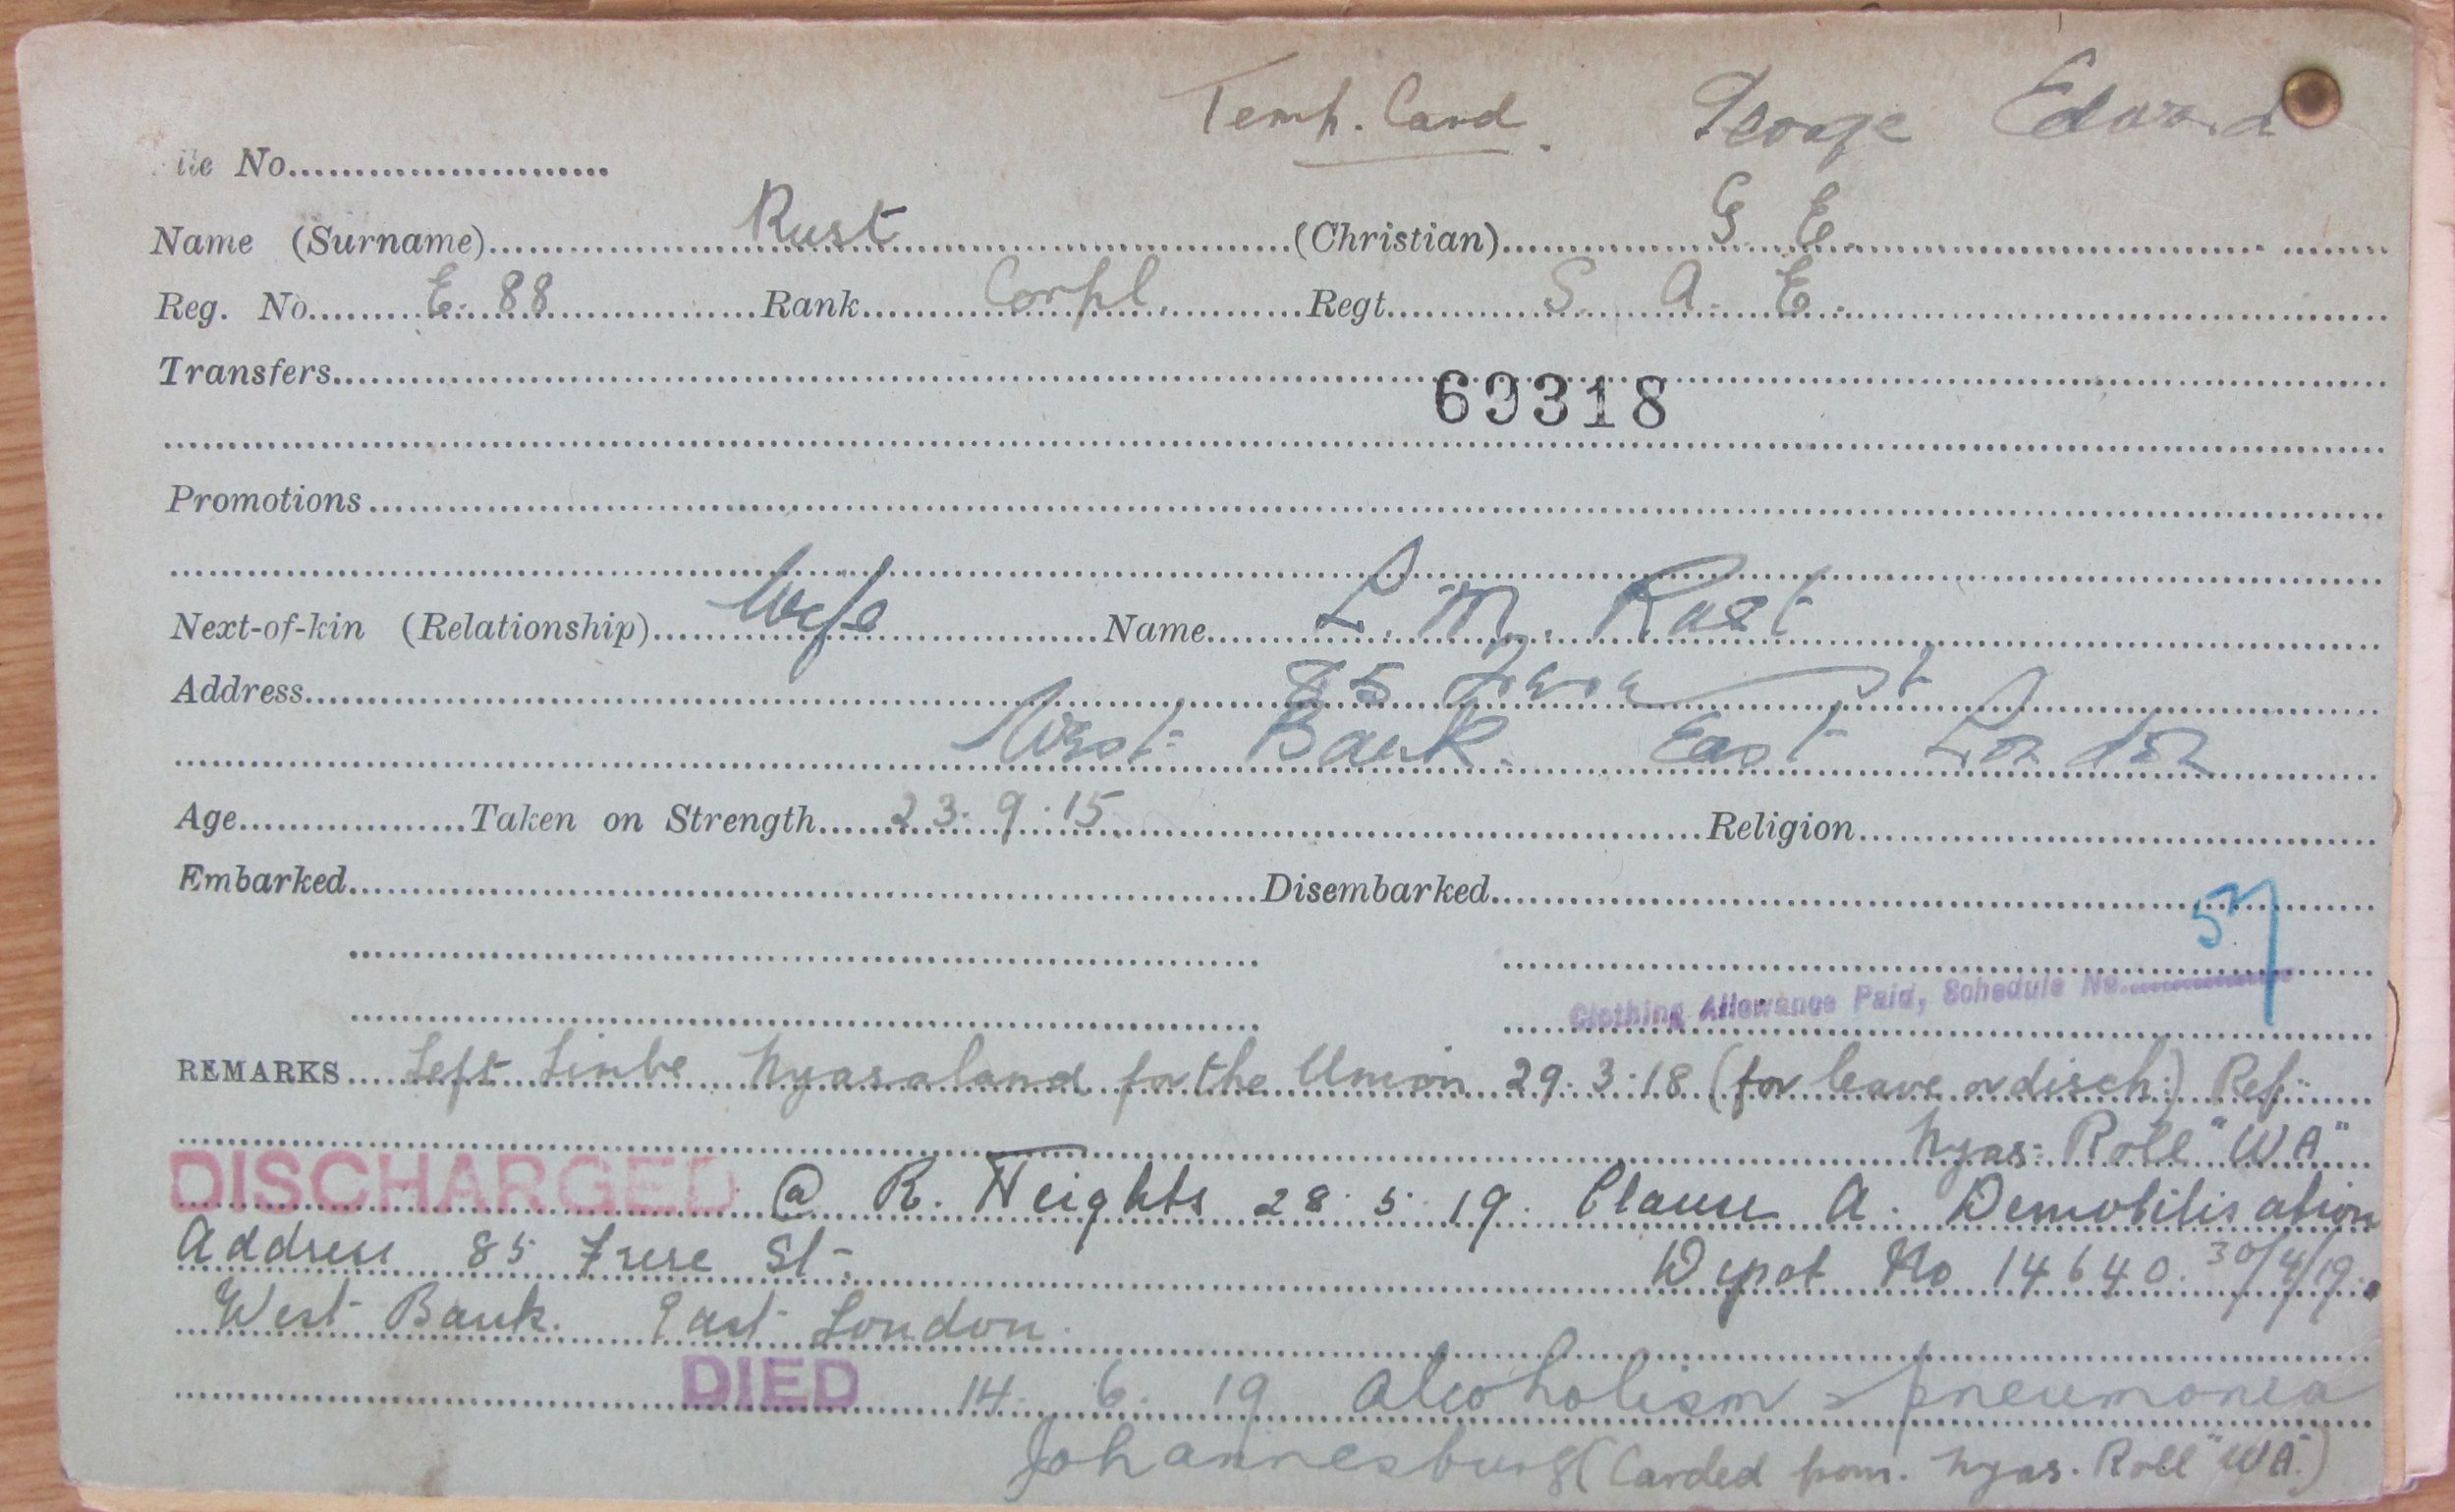 Temp. Card. George Edward
ile No.
Name (Surname) Rust (Christian) G. E.
Reg. No. E. 88 Rank Corpl. Regt. S. A. E.
Transfers
69318
Promotions
Next-of-kin (Relationship) Wife Name L. M. Rust
Address 85 Frere St
West Bank. East London
Age Taken on Strength 23.9.15 Religion
Embarked Disembarked
57
Clothing Allowance Paid, Schedule No.
REMARKS Left Limbe Nyasaland for the Union 29.3.18 (for leave or disch:) Ref:
Nyas: Roll "WA"
DISCHARGED @ R. Heights 28.5.19. Clause A. Demobilisation
Address 85 Frere St. Depot No 14640. 30/4/19.
West Bank. East London.
DIED 14. 6. 19 Alcoholism & pneumonia
Johannesburg (Carded from. Nyas. Roll "WA".)